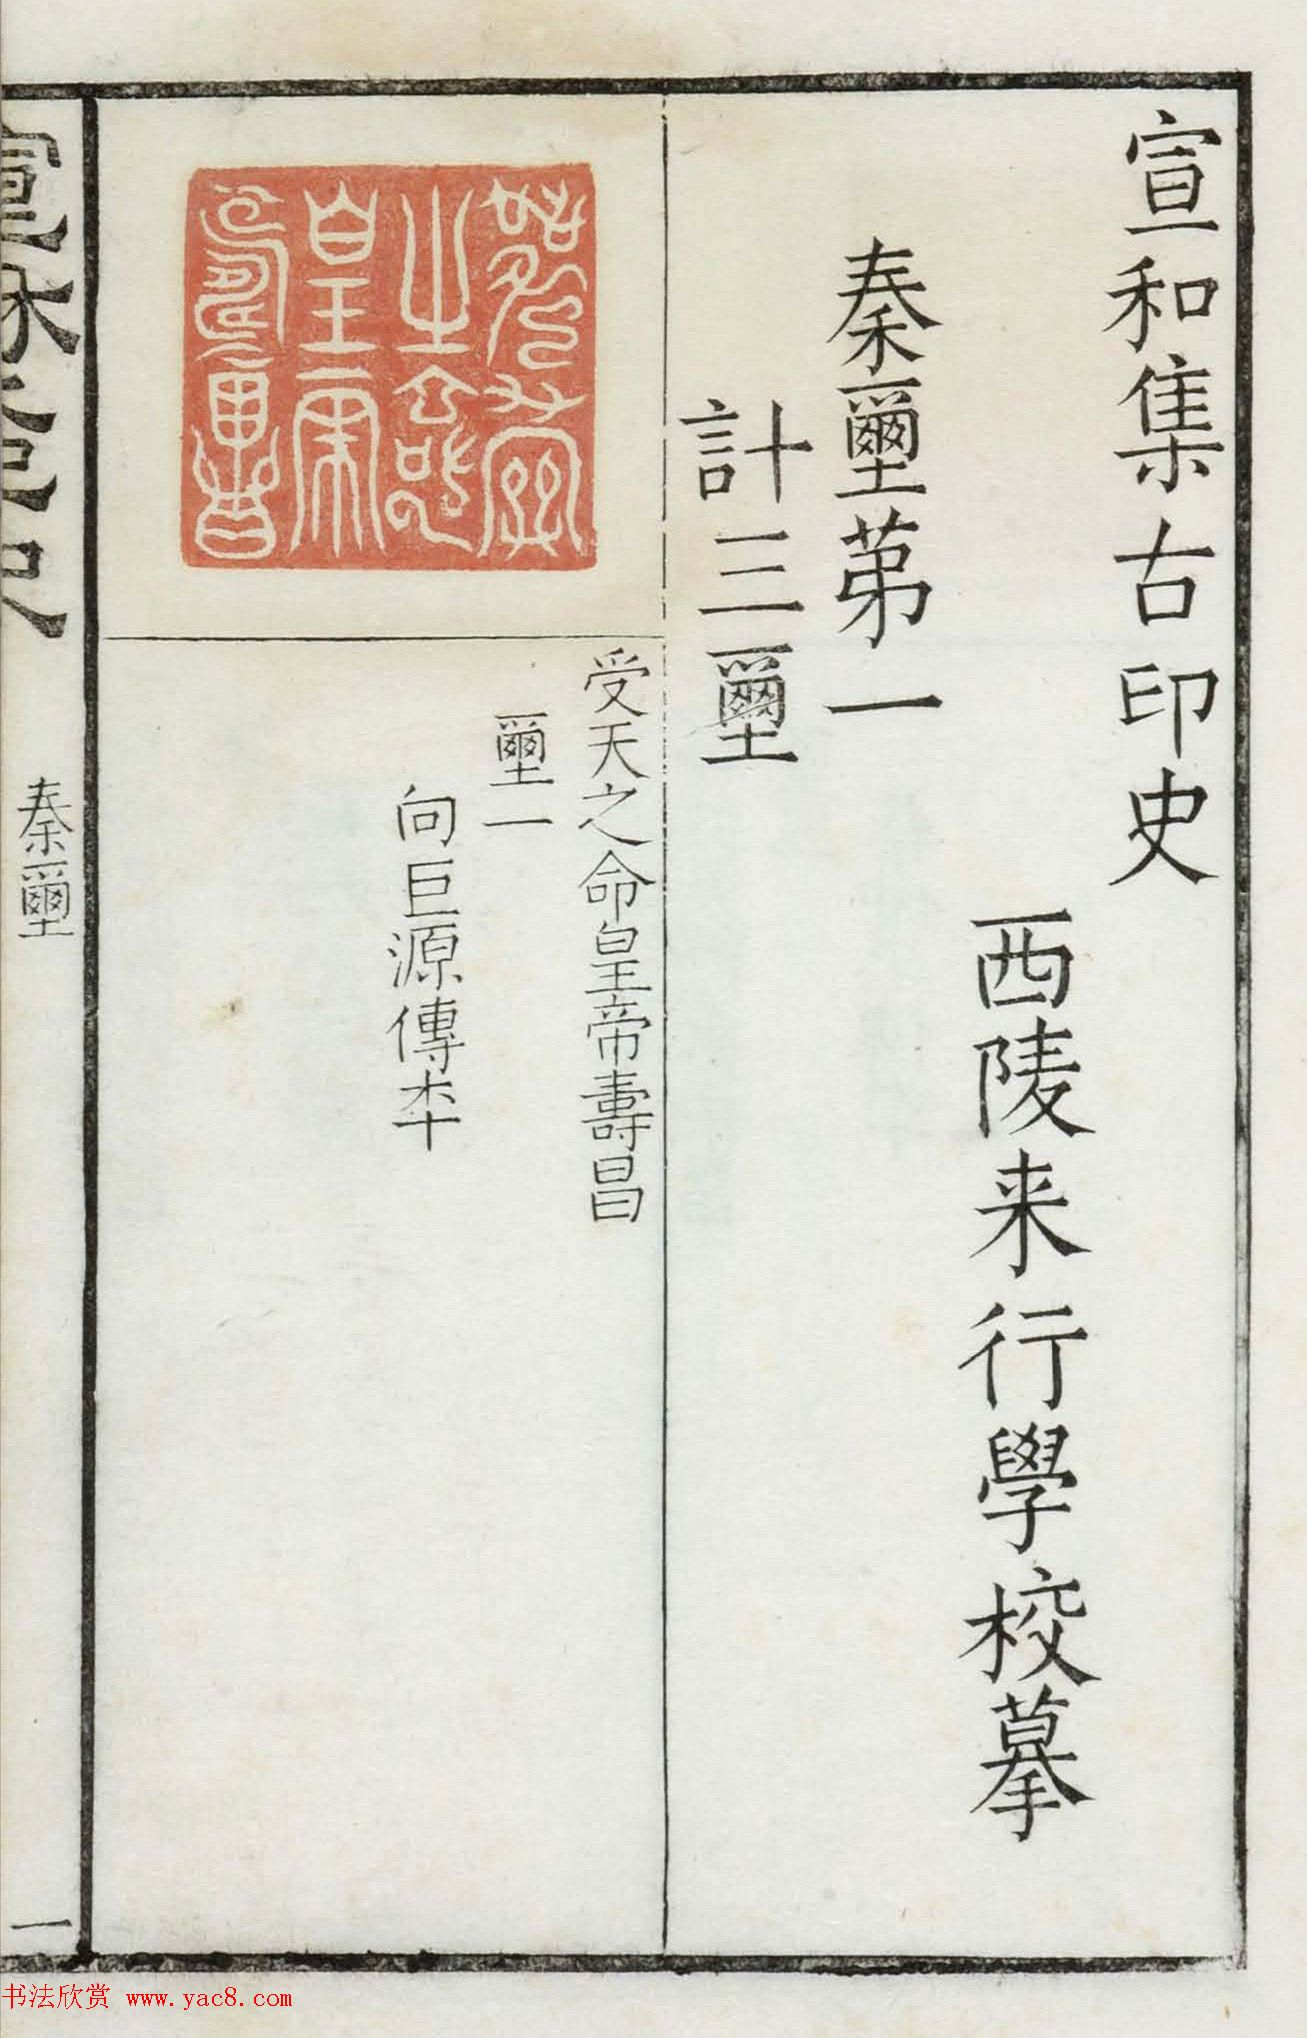 宣和集古印史
西陵来行學校摹
秦璽苐一
計三璽
受天之命皇帝壽昌
璽一
向巨源傳本
秦璽
一
书法欣赏 www.yac8.com